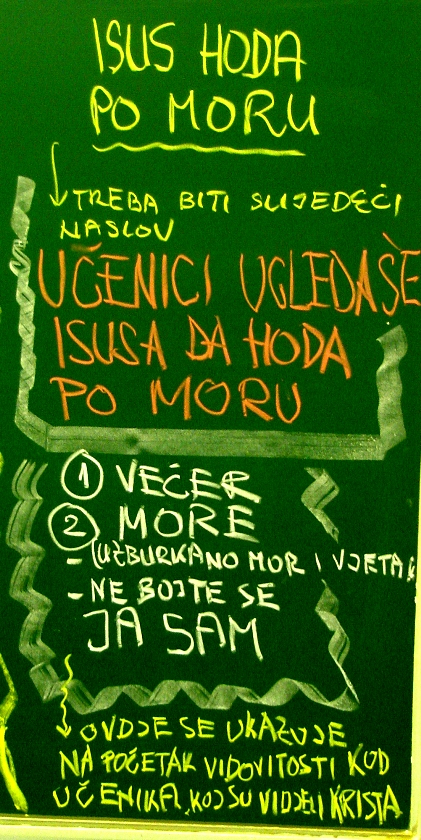 ISUS HODA
PO MORU
TREBA BITI SLIJEDEĆI
NASLOV
UČENICI UGLEDAŠE
ISUSA DA HODA
PO MORU
1 VEČER
2 MORE
- (UZBURKANO MOR I VJETAR
- NE BOJTE SE
JA SAM
OVDJE SE UKAZUJE
NA POČETAK VIDOVITOSTI KOD
UČENIKA, KOJ SU VIDJELI KRISTA